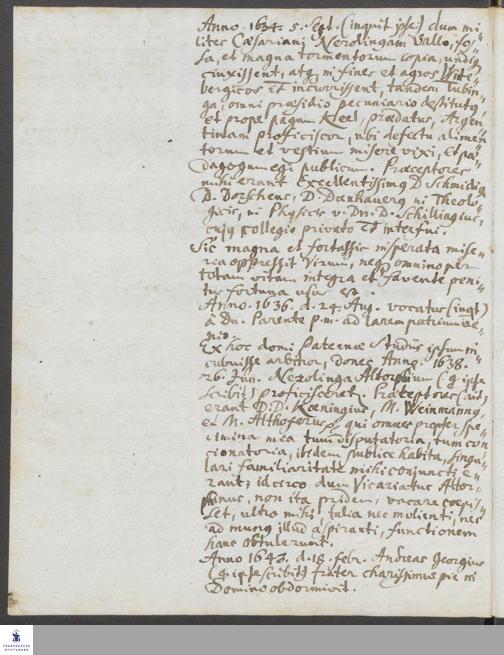 Anno. 1634. 5. Sept. (inquit ipse) dum mi-
lites Cæsariani Nerolingam Vallo, fos-
sa, et magna tormentorum copia, undiq
cinxissent, atq in fines et agros Wirte-
bergicos incurrissent, tandem Tubin-
ga, omni præsidio pecuniario destitutq
et prope pagum Keel, prædatus, Argen-
tinam proficiscor, ubi defectu alimen-
torum et vestium misere vixi, et pæ-
dagogum egi publicum. Præceptores
mihi erant Excellentissimq D. Schmidiq
D. Dorscheus, D. Danhauerq in Theolo-
gicis, in Physicis v. Dn. D. Schillingius,
cujq collegio privato interfui.
Sic magna et fortassis insperata mise-
ria oppressit Virum, neq omnino per
totam vitam integra et favente peni-
tus fortuna usus
Anno. 1636. d. 24. Aug. vocatus (inqt)
â Dn. Parente p.m. ad larem patrium ve-
nio.
Ex hoc domi Paternæ studiis ipsum in-
cubuisse arbitror, donec Anno. 1638.
26. Jun. Nerolinga Altorphium (q ipse
scribit) proficisceret. Præceptores (ait)
erant D.D. Kœnigius, M. Weinmannq,
et M. Althoferus, qui omnes propter spe-
cimina mea tum disputatoria, tum con-
cionatoria, ibidem publice habita, singu-
lari familiaritate mihi conjuncti e-
rant; idcirco dum Vicariatus Altor-
phinus, non ita pridem, vacare cœpis-
set, ultro mihi, talia nec molienti, nec
ad munq illud aspiranti, functionem
hanc obtulerunt.
Anno 1643. d. 18. febr. Andreas Georgius
(q ipse scribit) frater charissimus pie in
Domino obdormivit.
FRANCKESCHE
STIFTUNGEN